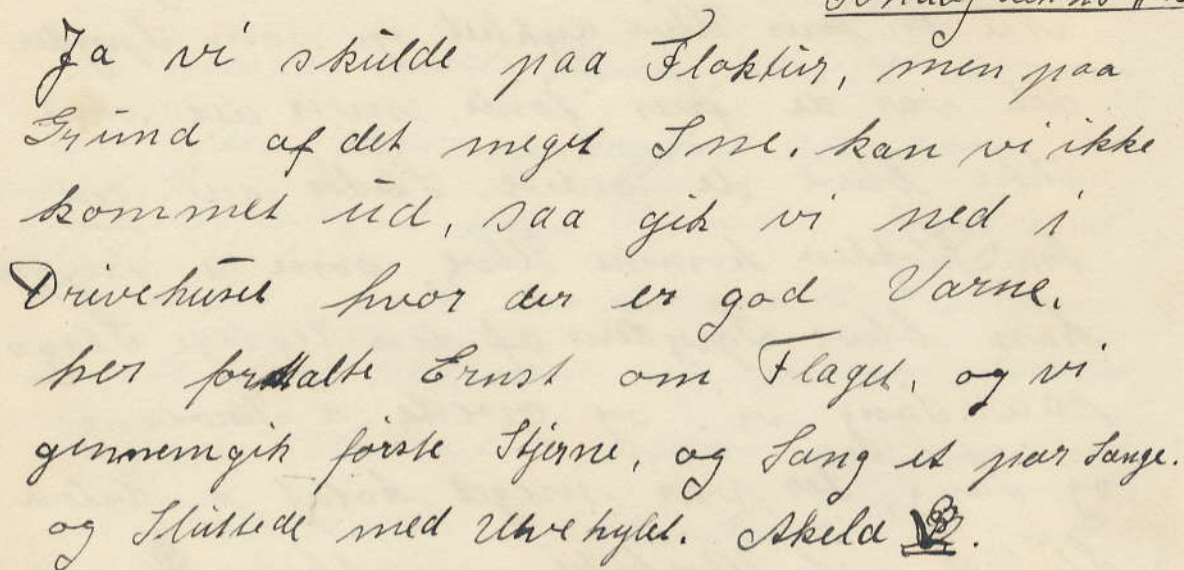 Ja vi skulde paa Floktur, men paa
Grund af det meget Sne. kan vi ikke
kommet ud, saa gik vi ned i
Drivehuset hvor der er god Varne.
her fortalte Ernst om Flaget, og vi
gennemgik förste Stjerne, og Sang et par Sange.
og Sluttede med Ulvehylet. Akela